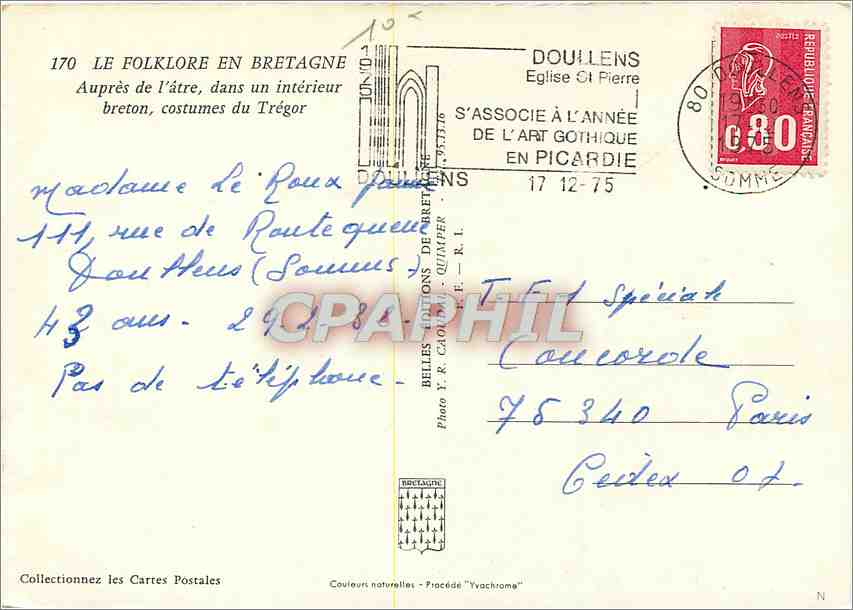 170 LE FOLKLORE EN BRETAGNE
Auprès de l'âtre, dans un intérieur
breton, costumes du Trégor
1010
DOULLENS
DOULLENS
Eglise St Pierre
S'ASSOCIE À L'ANNÉE
DE L'ART GOTHIQUE
EN PICARDIE
17 12-75
80 DOULLENS
19 30
17
1975
SOMME
POSTES
RÉPUBLIQUE FRANÇAISE
0,80
Madame Le Roux
111, rue de Routequeue
Doullens (Somme)
43 ans - 29.2.33.
Pas de téléphone -
BELLES ÉDITIONS DE BRETAGNE
Photo Y. R. CAOUDAL - QUIMPER - 95.13.16
R. I.
T.F.1 Spéciale
Concorde
75340 Paris
Cedex 07.
CPAPHIL
BRETAGNE
Collectionnez les Cartes Postales
Couleurs naturelles - Procédé "Yvachrome"
N